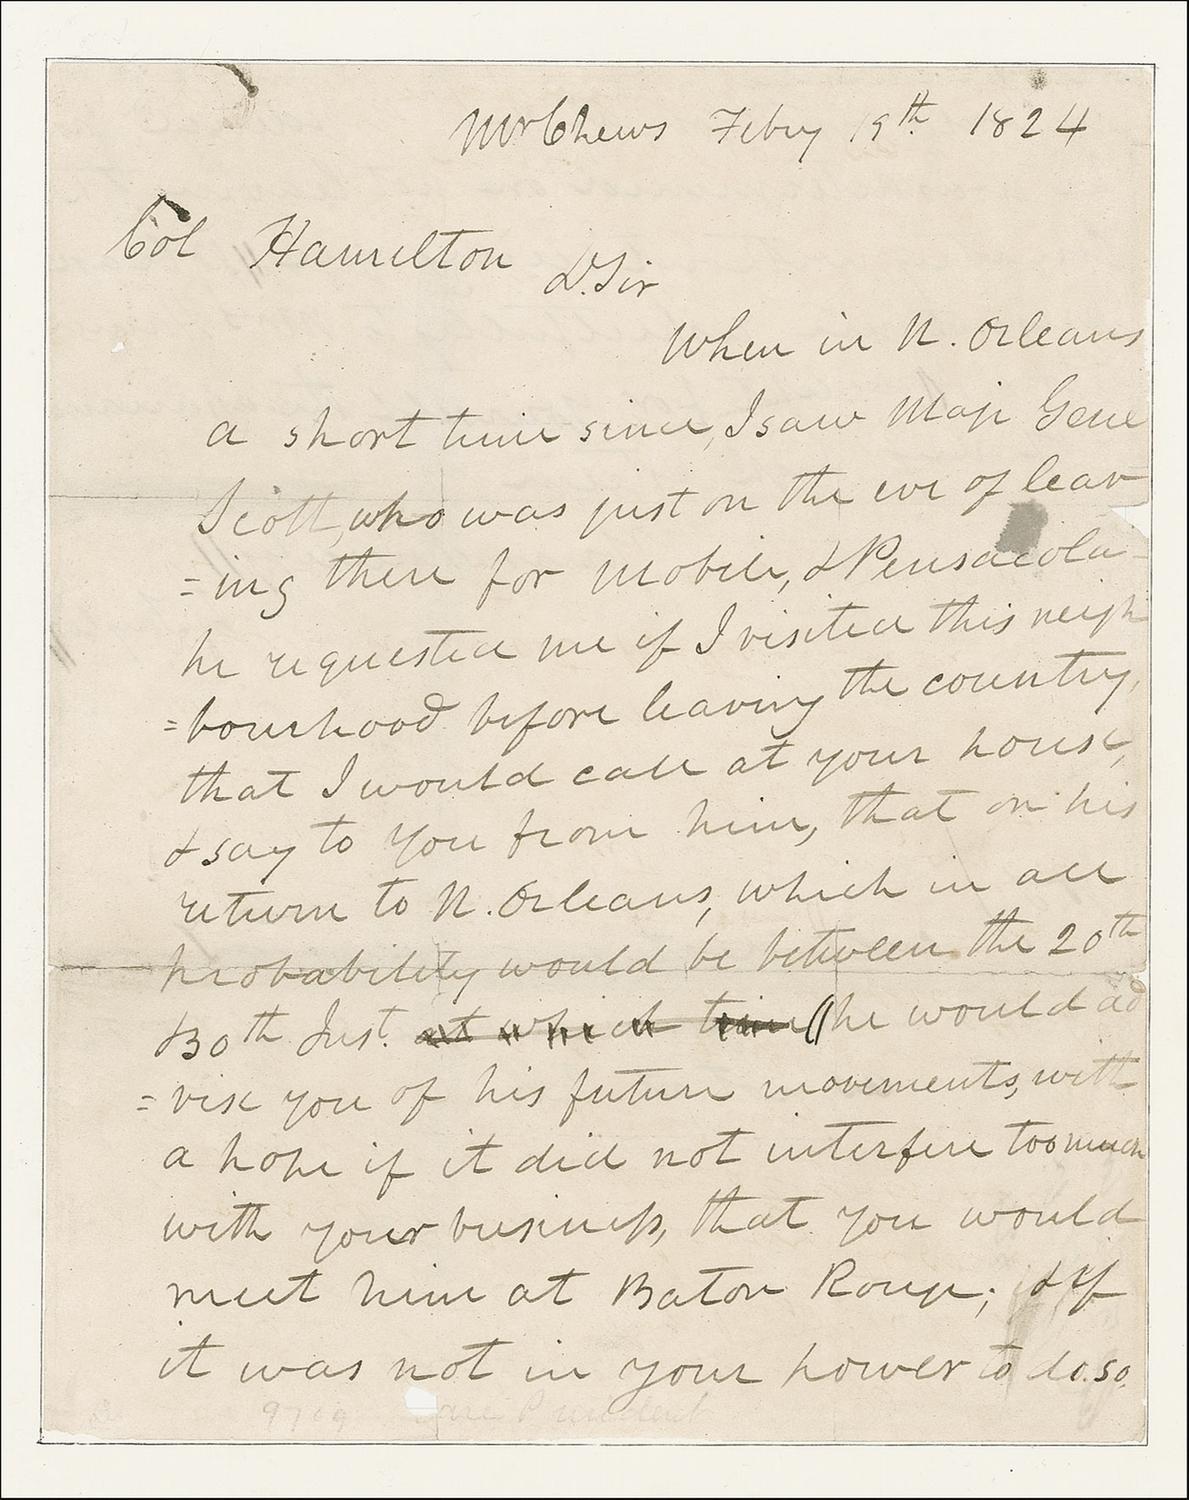 Mr Chews Feby 19th 1824
Col Hamilton
D. Sir
When in N. Orleans
a short time since, I saw Majr Gene
Scott, who was just on the eve of leav
=ing there for Mobile, & Pensacola-
he requested me if I visited this neigh
=bourhood before leaving the country,
that I would call at your house,
& say to you from him, that on his
return to N. Orleans, which in all
probability would be between the 20th
& 30th Inst. at which time he would ad
=vise you of his future movements, with
a hope if it did not interfere too much
with your business, that you would
meet him at Baton Rouge; & if
it was not in your power to do so.